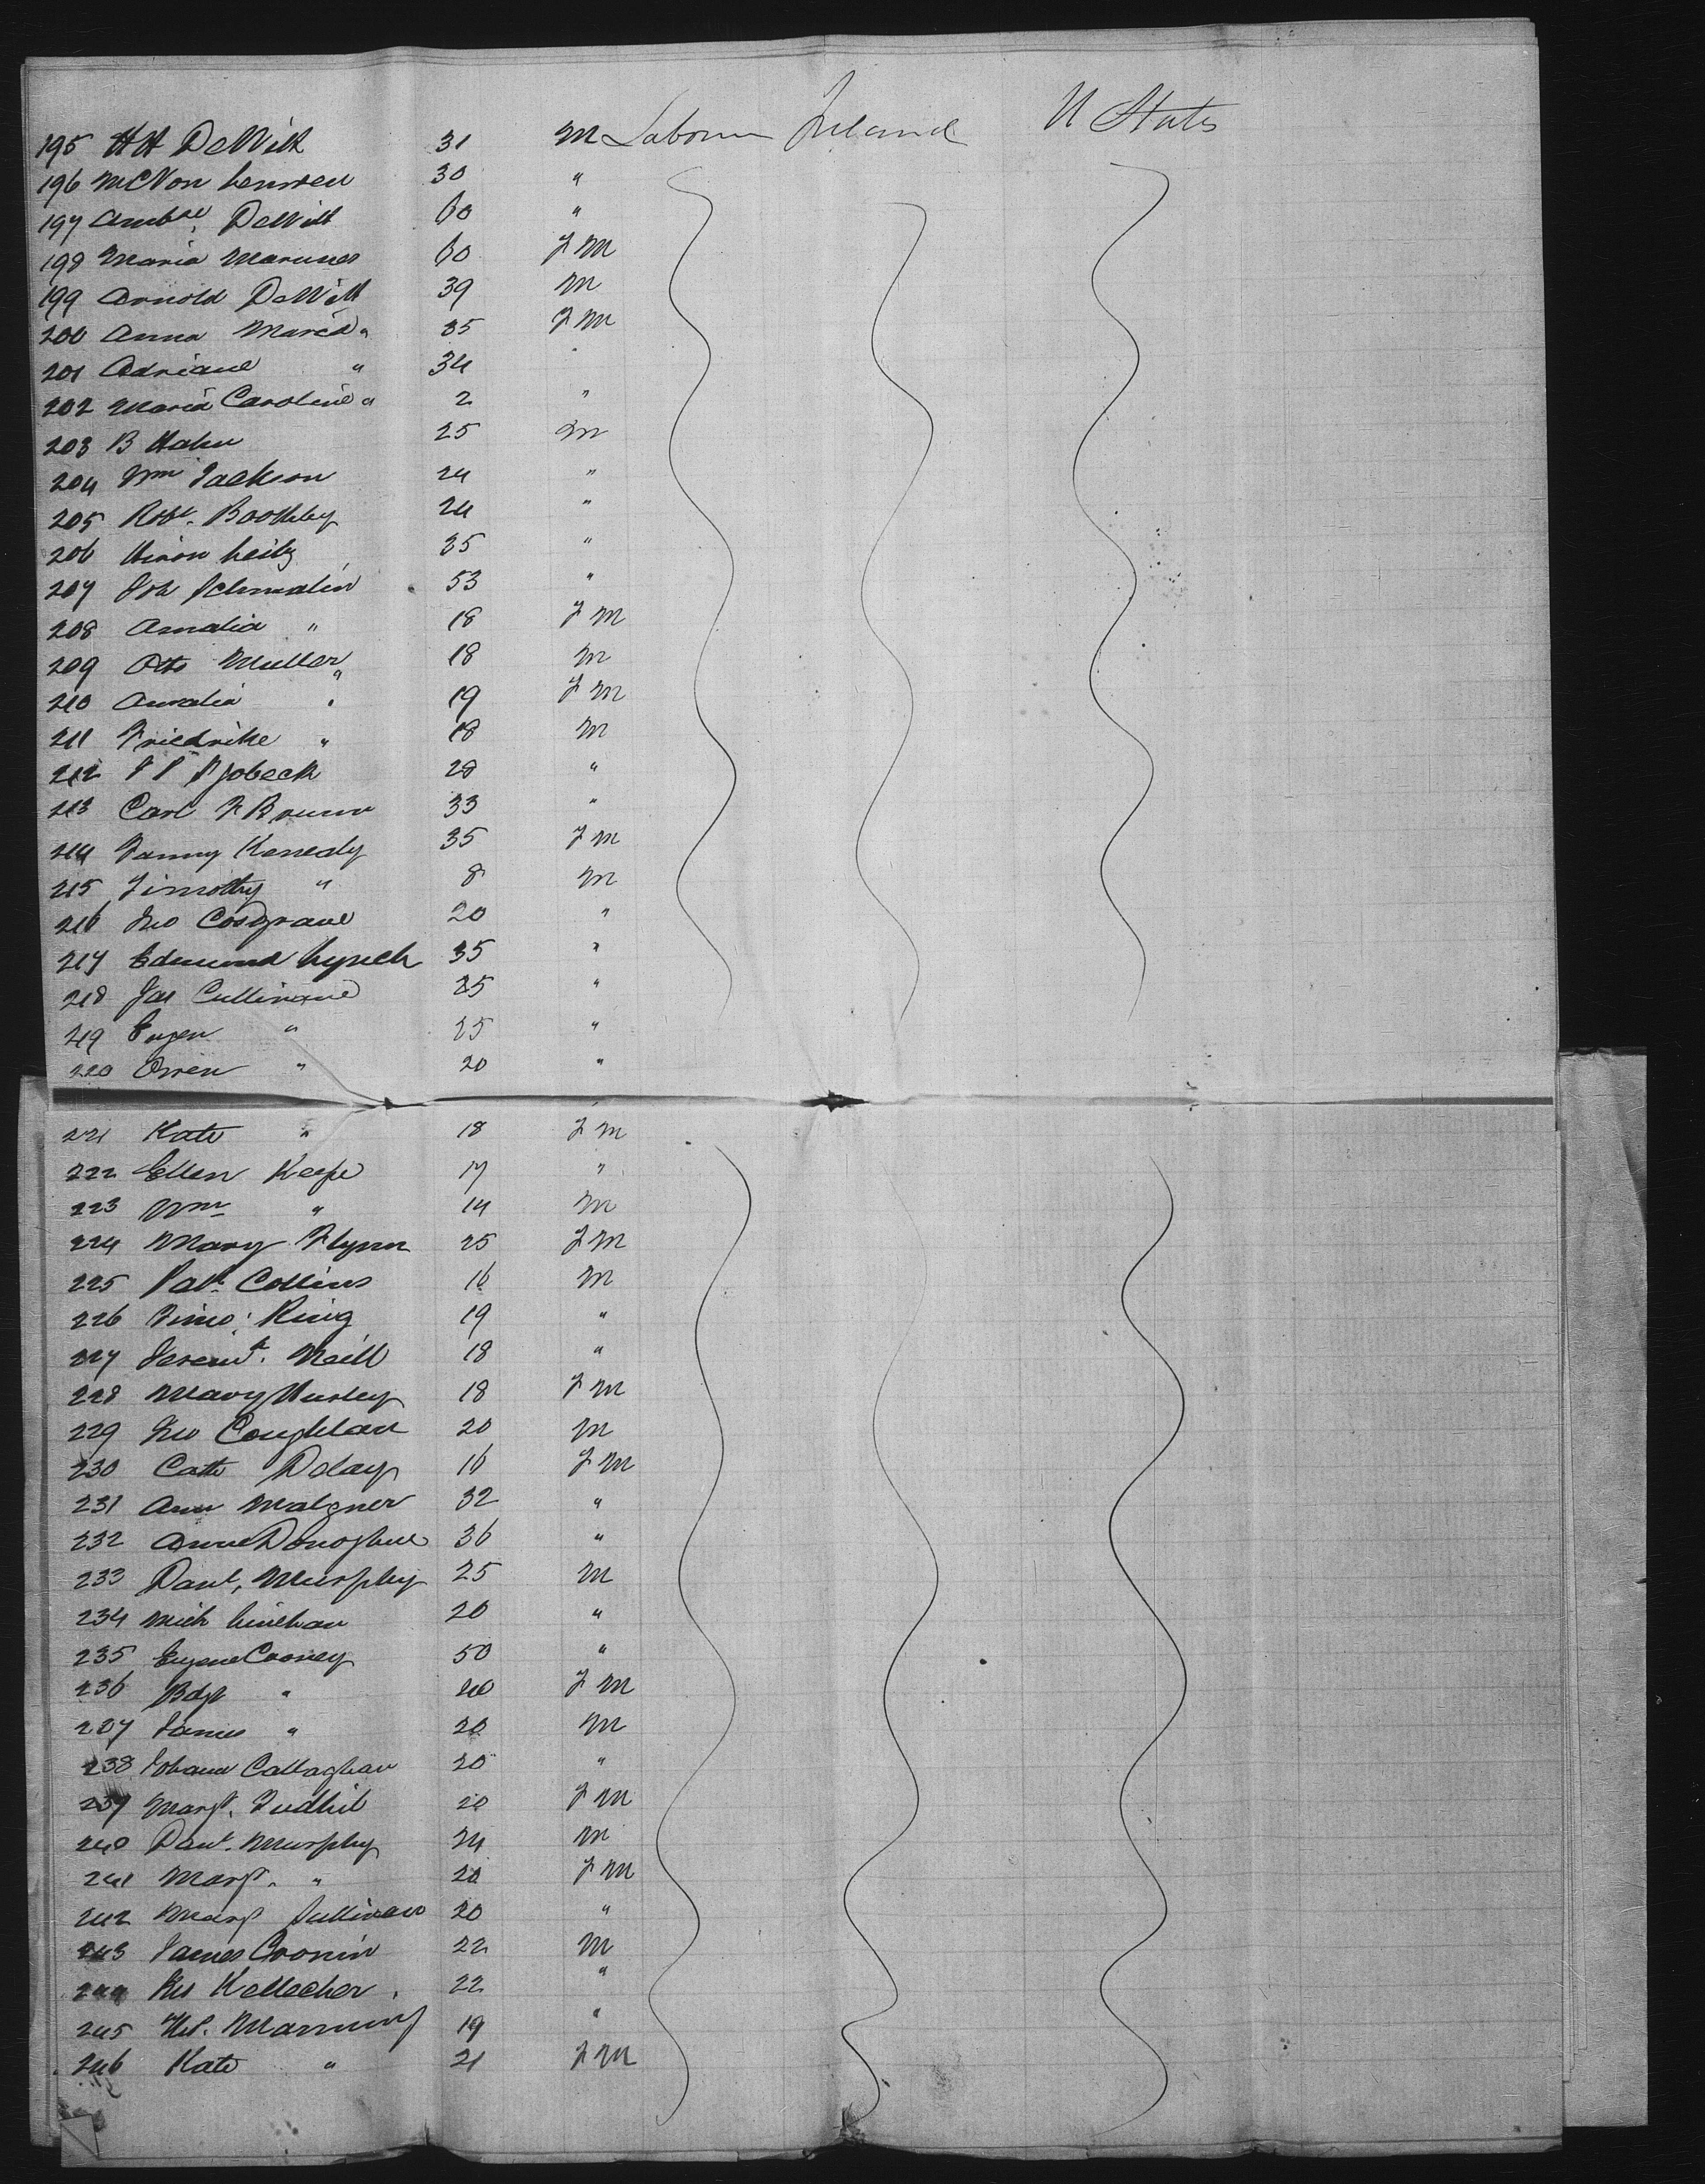 195 HH DeWitt 31 M Laborer Ireland U States
196 McVon 30 "
197 DeWitt 60 "
198 Maria 60 F M
199 Arnold DeWitt 39 M
200 Anna Maria " 35 F M
201 Adriane " 34 "
202 Maria Caroline " 2 "
203 B Hahn 25 M
204 Wm Jackson 24 "
205 Robt. Boothby 24 "
206 35 "
207 53 "
208 Amalia " 18 F M
209 Otto Muller 18 M
210 Amalia " 19 F M
211 Friedrike " 18 M
212 28 "
213 Carl F Brunn 33 "
214 Fanny Kenedy 35 F M
215 Timothy " 8 M
216 Jno Cosgrave 20 "
217 Edmund Lynch 35 "
218 Jas Cullinane 25 "
219 Eugen " 25 "
220 Owen " 20 "
221 Kate " 18 F M
222 Ellen Keefe 17 "
223 Wm " 14 M
224 Mary Flynn 25 F M
225 Patk Collins 16 M
226 Timo: Ring 19 "
227 Neill 18 "
228 Mary Hurley 18 F M
229 Jno Coughlan 20 M
230 Cath 16 F M
231 Ann 32 "
232 Anne Donoghue 36 "
233 Danl, Murphy 25 M
234 Mich Linehan 20 "
235 Eugene Cooney 50 "
236 Bdgt " 40 F M
237 James " 20 M
238 Johana Callaghan 20 "
239 Margt. 20 F M
240 Danl. Murphy 24 M
241 Margt. " 20 F M
242 Margt Sullivan 20 "
243 James Cronin 22 M
244 Kellecher 22 "
245 Manning 19 "
246 Kate " 21 F M